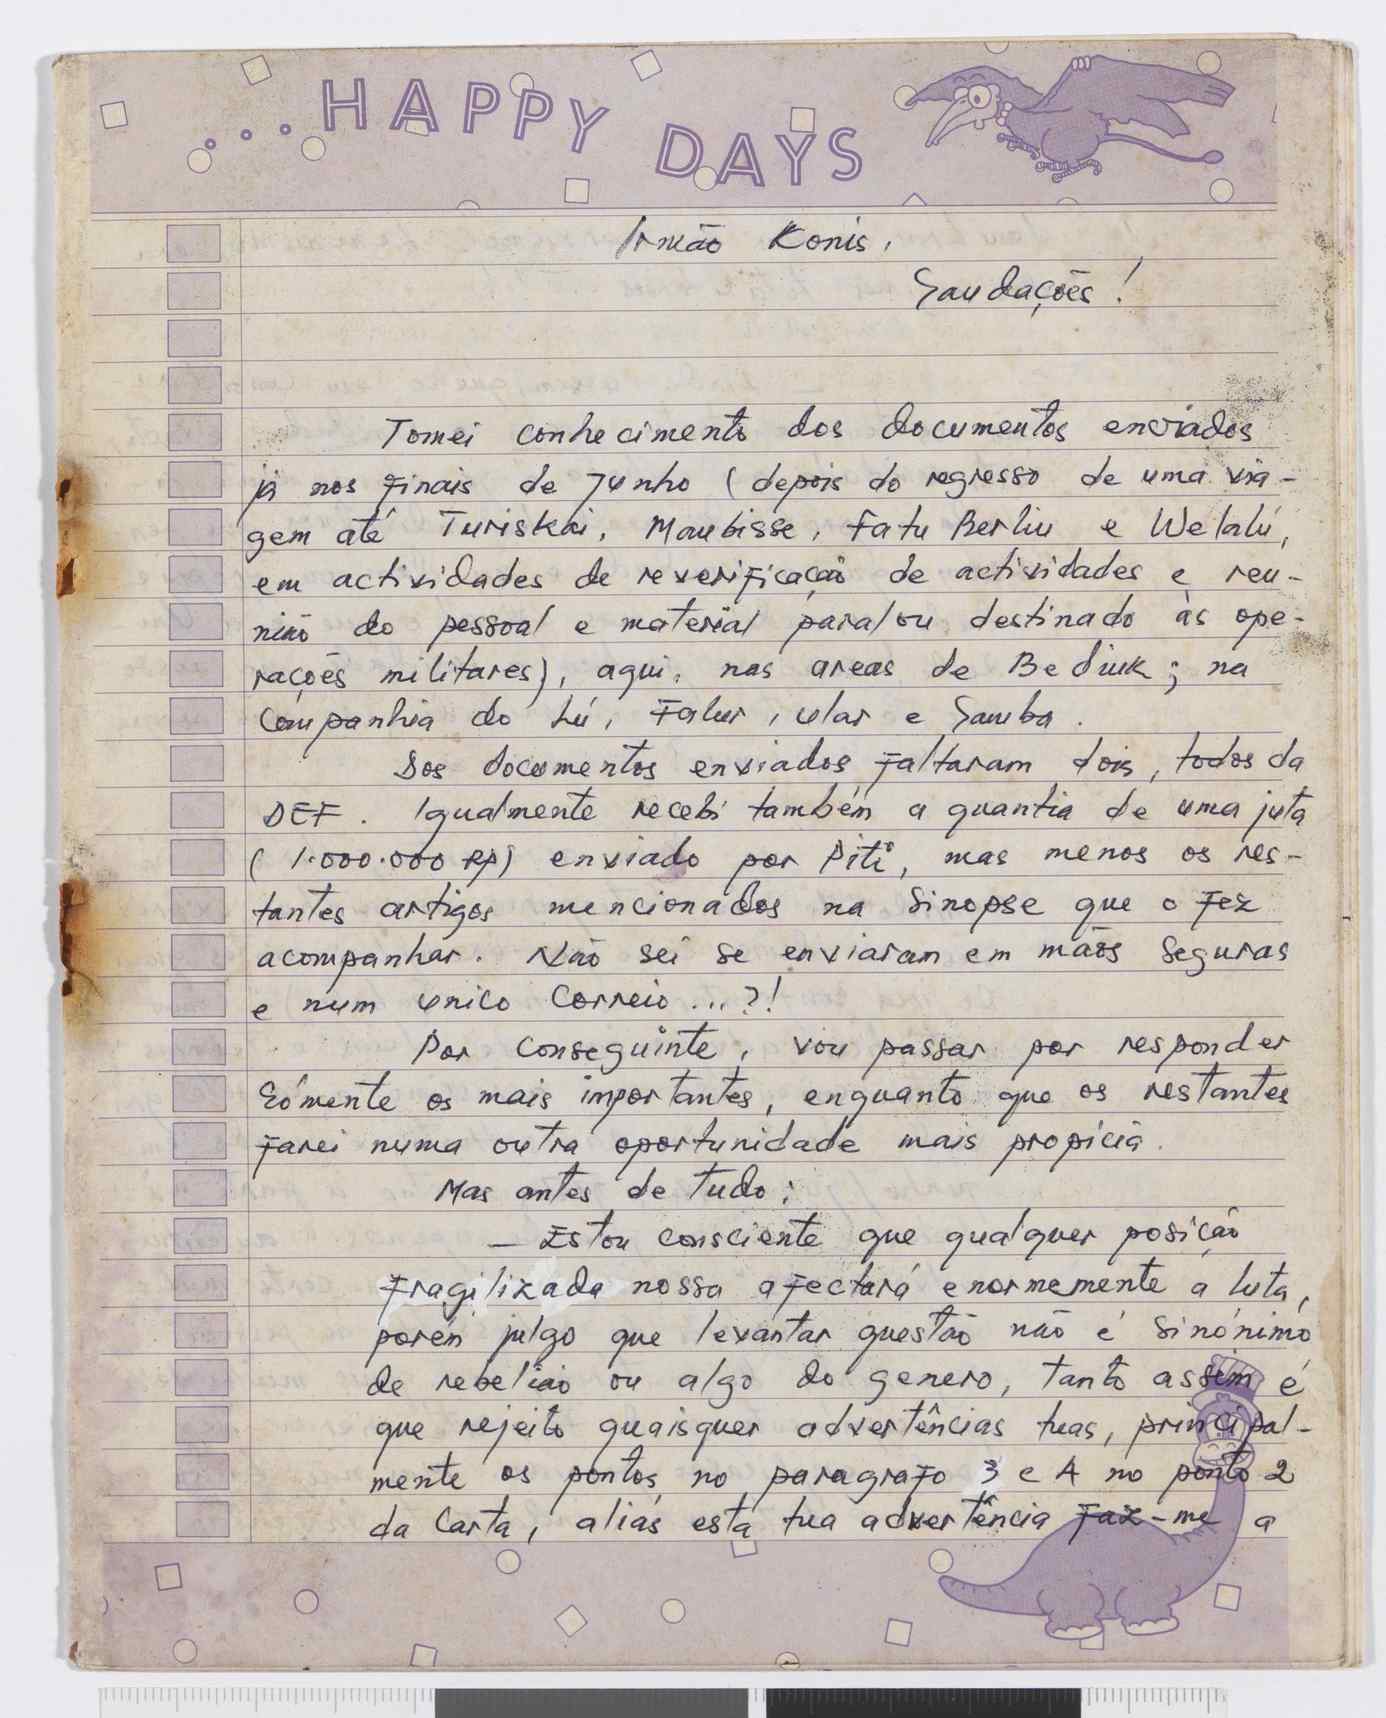 ...HAPPY DAYS
Irmão Konis,
Saudações!
Tomei conhecimento dos documentos enviados
já nos finais de Junho (depois do regresso de uma via-
gem até Turiskai, Maubisse, Fatu Berliu e Welalú,
em actividades de reverificação de actividades e reu-
nião do pessoal e material para/ou destinado às ope-
rações militares), aqui, nas areas de Bediuk; na
Companhia do Lú, Falur, Ular e Samba.
Dos documentos enviados faltaram dois, todos da
DEF. Igualmente recebi também a quantia de uma juta
(1.000.000 RP) enviado por Piti, mas menos os res-
tantes artigos mencionados na Sinopse que o fez
acompanhar. Não sei se enviaram em mãos seguras
e num unico Correio...?!
Por conseguinte, vou passar por responder
sómente os mais importantes, enquanto que os restantes
farei numa outra oportunidade mais propícia.
Mas antes de tudo:
— Estou consciente que qualquer posição
fragilizada nossa afectará enormemente a luta,
porém julgo que levantar questão não é sinónimo
de rebelião ou algo do genero, tanto assim é
que rejeito quaisquer advertências tuas, principal-
mente os pontos no paragrafo 3 e A no ponto 2
da Carta, aliás esta tua advertência faz-me a